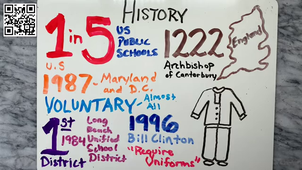 HISTORY
1 in 5
US
PUBLIC
SCHOOLS
U.S
1222
England
Archbishop
of Canterbury
1987- Maryland
and D.C.
VOLUNTARY- Almost
All
1st
District
1984
Long
Beach
Unified
School
District
1996
Bill Clinton
"Require
Uniforms"